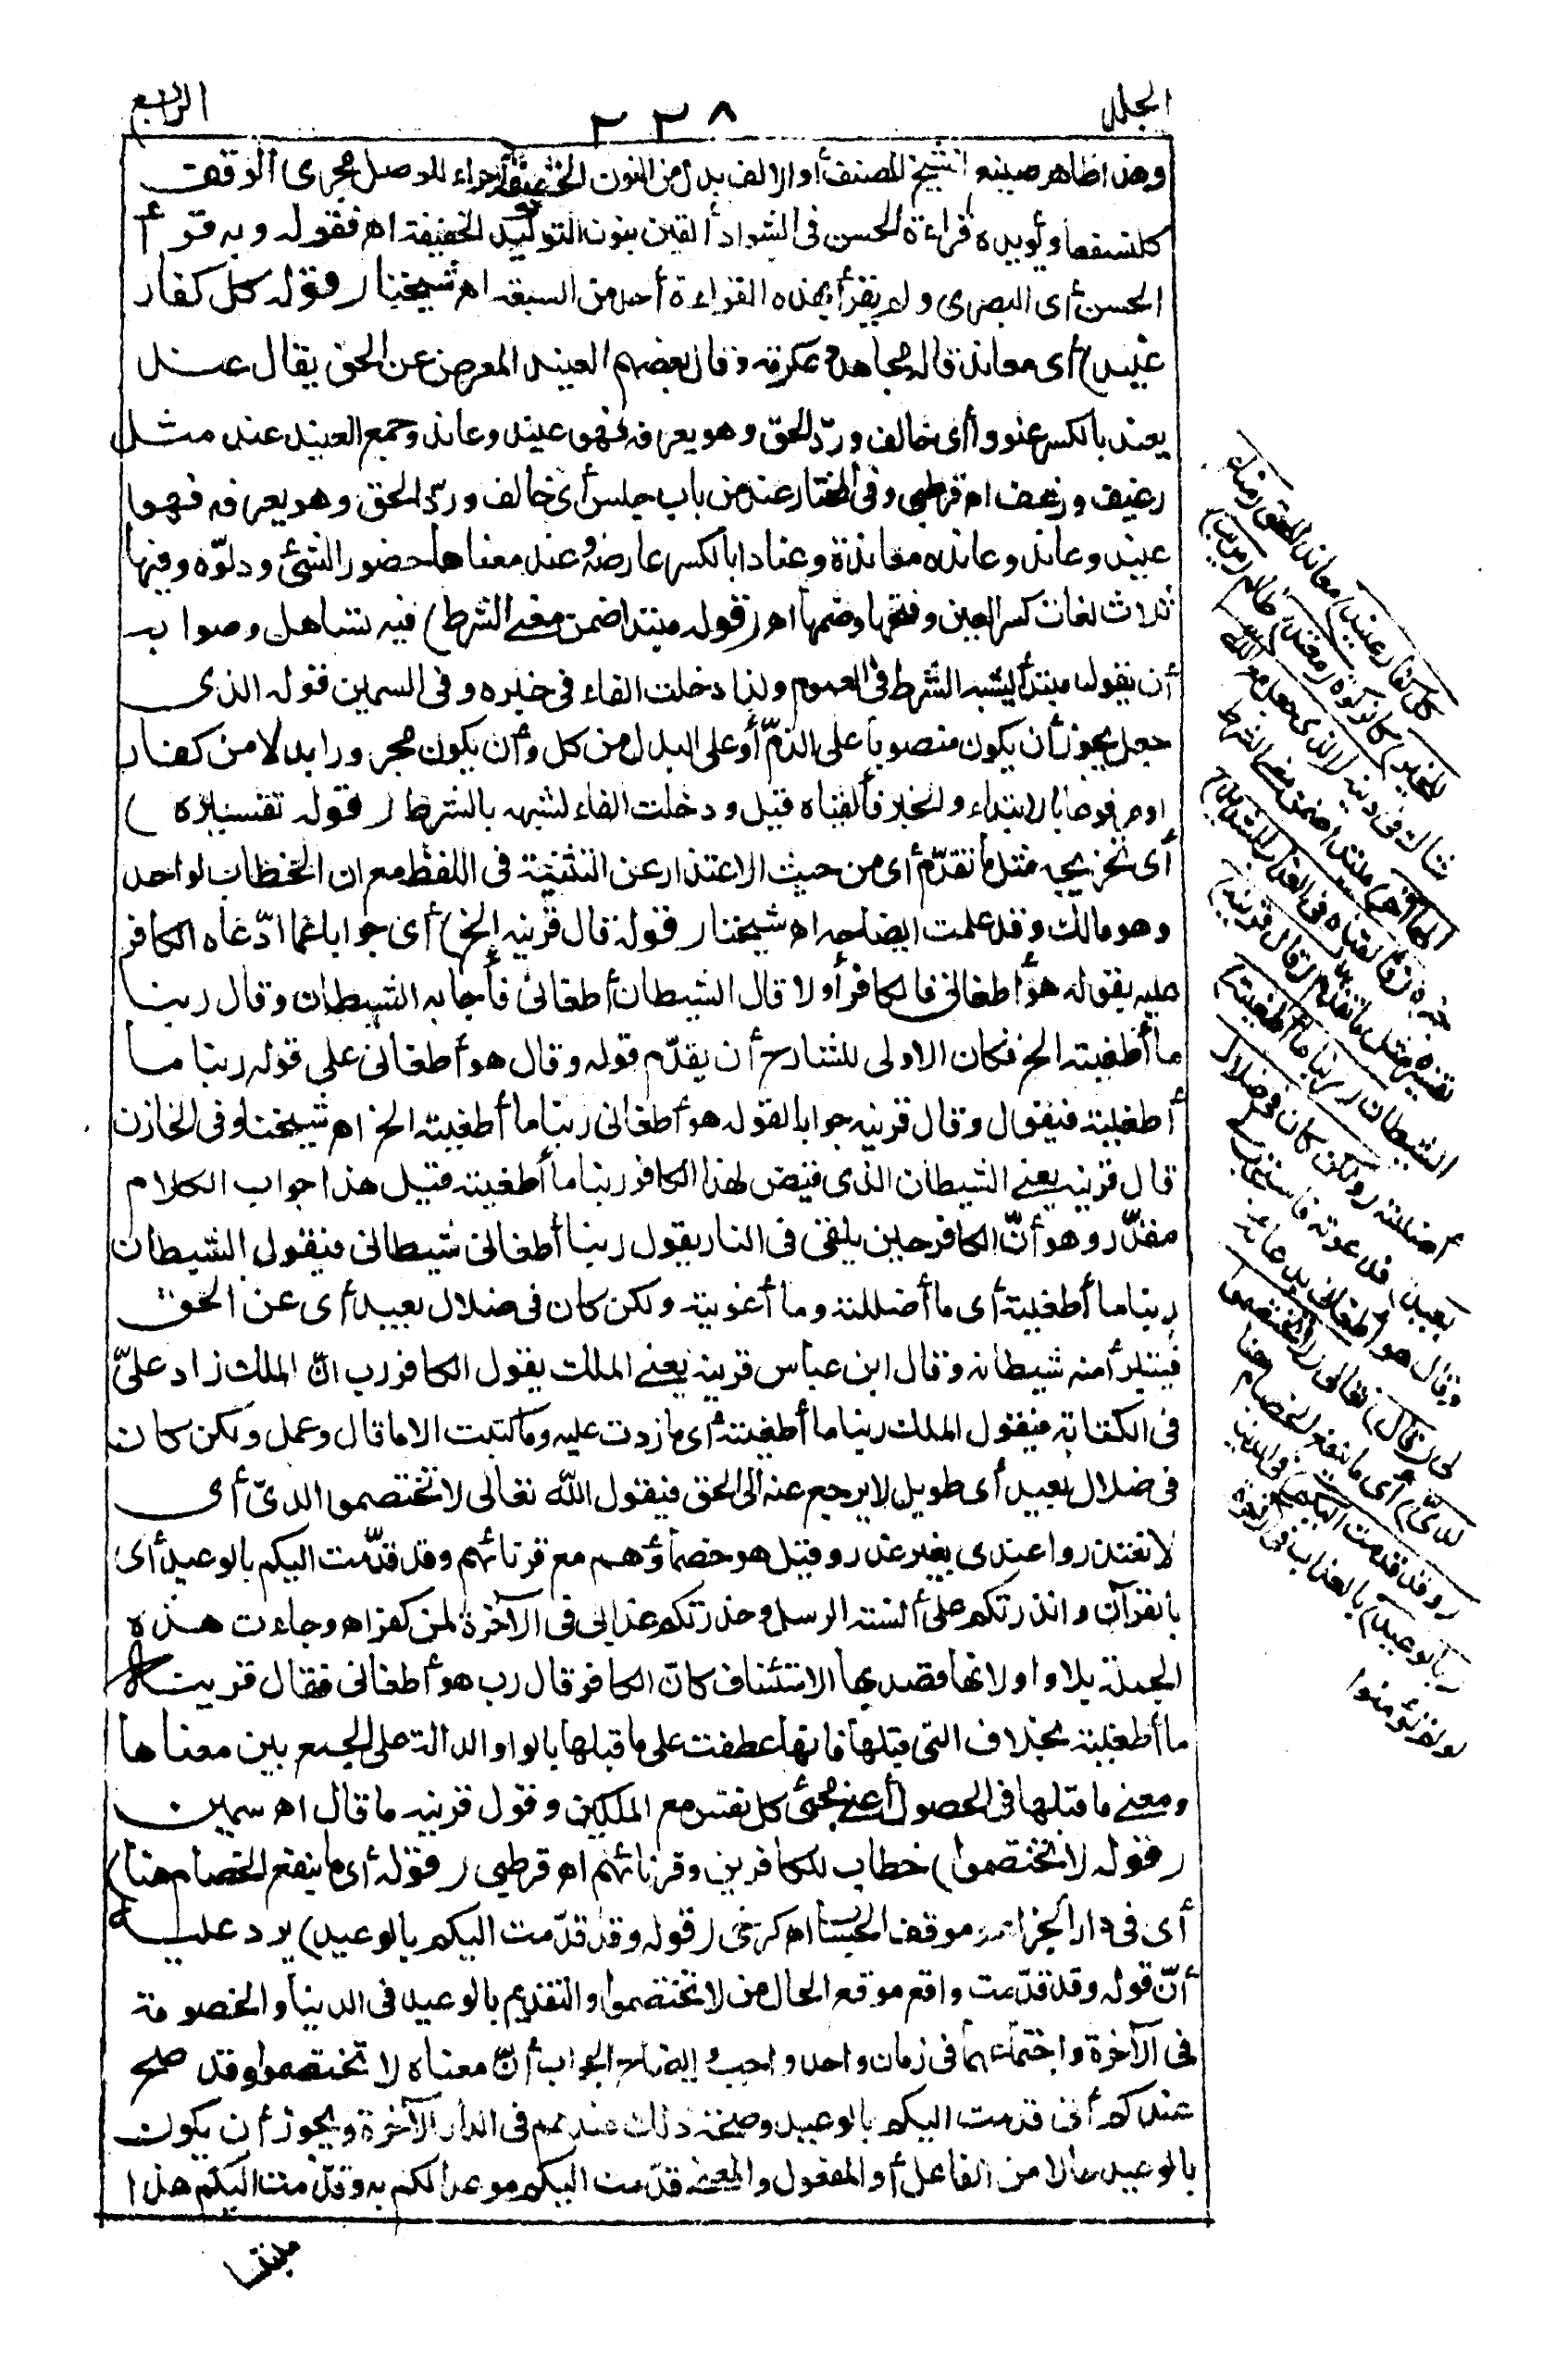 المجلد
٢٣٨
الرابع
وهذا ظاهر صنيع الشيخ المصنف أو الالف بدل من النون الخفيفة أجراء للوصل مجرى الوقف
كلنسفعا ويؤيده قراءة الحسن فى الشواذ ألقين بنون التوكيد الخفيفة اهـ فقوله وبه قرأ
الحسن أى البصرى ولم يقرأ بهذه القراءة أحد من السبعة اهـ شيخنا (قوله كل كفار
عنيد) أى معاند قاله مجاهد وعكرمة وقال بعضهم العنيد المعرض عن الحق يقال عند
يعند بالكسر عنودا أى خالف وردّ الحق وهو يعرفه فهو عنيد وعاند وجمع العنيد عند مثل
رغيف ورغف اهـ قرطبى وفى المختار عند من باب جلس أى خالف وردّ الحق وهو يعرفه فهو
عنيد وعاند وعانده معاندة وعنادا بالكسر عارضه وعند معناها حضور الشئ ودنوّه وفيها
ثلاث لغات كسر العين وفتحها وضمها اهـ (قوله مبتدا ضمن معنى الشرط) فيه تساهل وصوابه
أن يقول مبتدأ يشبه الشرط فى العموم ولذا دخلت الفاء فى خبره وفى السمين قوله الذى
جعل يجوز أن يكون منصوبا على الذمّ أو على البدل من كل وأن يكون مجرورا بدلا من كفار
أو مرفوعا بالابتداء والخبر فألقياه قيل ودخلت الفاء لشبهه بالشرط (قوله تفسيره)
أى تخريجه مثل ما تقدّم أى من حيث الاعتذار عن التثنية فى اللفظ مع ان الخطاب لواحد
وهو مالك وقد علمت ايضاحه اهـ شيخنا (قوله قال قرينه الخ) أى جوابا عما ادّعاه الكافر
عليه بقوله هو أطغانى فالكافر أولا قال الشيطان أطغانى فأجابه الشيطان وقال ربنا
ما أطغيته الخ فكان الاولى للشارح أن يقدّم قوله وقال هو أطغانى على قوله ربنا ما
أطغيته فيقول وقال قرينه جوابا لقوله هو أطغانى ربنا ما أطغيته الخ اهـ شيخنا وفى الخازن
قال قرينه يعنى الشيطان الذى قيض لهذا الكافر ربنا ما أطغيته قيل هذا جواب الكلام
مقدّر وهو أنّ الكافر حين يلقى فى النار يقول ربنا أطغانى شيطانى فيقول الشيطان
ربنا ما أطغيته أى ما أضللته وما أغويته ولكن كان فى ضلال بعيد أى عن الحق
فيتبرأ منه شيطانه وقال ابن عباس قرينه يعنى الملك يقول الكافر رب انّ الملك زاد علىّ
فى الكتابة فيقول الملك ربنا ما أطغيته أى ما زدت عليه وما كتبت الا ما قال وعمل ولكن كان
فى ضلال بعيد أى طويل لا يرجع عنه الى الحق فيقول الله تعالى لا تختصموا لدىّ أى
لا تعتذروا عندى بغير عذر وقيل هو خصماؤهم مع قرنائهم وقد قدّمت اليكم بالوعيد أى
بالقرآن وانذرتكم على ألسنة الرسل وحذرتكم عذابى فى الآخرة لمن كفر اهـ وجاءت هذه
الجملة بلا واو لانها قصد بها الاستئناف كانّ الكافر قال رب هو أطغانى فقال قرينه
ما أطغيته بخلاف التى قبلها فانها عطفت على ما قبلها بالواو الدالة على الجمع بين معناها
ومعنى ما قبلها فى الحصول أعنى مجئ كل نفس مع الملكين وقول قرينه ما قال اهـ سمين
(قوله لا تختصموا) خطاب للكافرين وقرنائهم اهـ قرطبى (قوله أى ما ينفع الخصام هنا)
أى فى دار الجزاء وموقف الحساب اهـ كرخى (قوله وقد قدّمت اليكم بالوعيد) يرد عليه
أنّ قوله وقد قدّمت واقع موقع الحال من لا تختصموا والتقديم بالوعيد فى الدنيا والخصومة
فى الآخرة واجتماعهما فى زمان واحد واجب وايضاح الجواب أنّ معناه لا تختصموا وقد صح
عندكم أنى قدمت اليكم بالوعيد وصحة ذلك عندهم فى الدار الآخرة ويجوز أن يكون
بالوعيد حالا من الفاعل أو المفعول والمعنى قدّمت اليكم موعدا لكم به وقدّمت اليكم هذا
كل كفار عنيد) معاند للحق (مناع
للخير) كالزكوة (معتد) ظالم (مريب)
شاك فى دينه (الذى جعل مع الله
الها آخر) مبتدا ضمن معنى الشرط
خبره (فألقياه فى العذاب الشديد)
تفسيره مثل ما تقدم (قال قرينه)
الشيطان (ربنا ما أطغيته)
أضللته (ولكن كان فى ضلال
بعيد) فدعوته فاستجاب
وقال هو أطغانى بدعائه
لى (قال) تعالى (لا تختصموا
لدىّ) أى ما ينفع الخصام هنا
(وقد قدمت اليكم) فى الدنيا
(بالوعيد) بالعذاب فى الآخرة
لو لم تؤمنوا